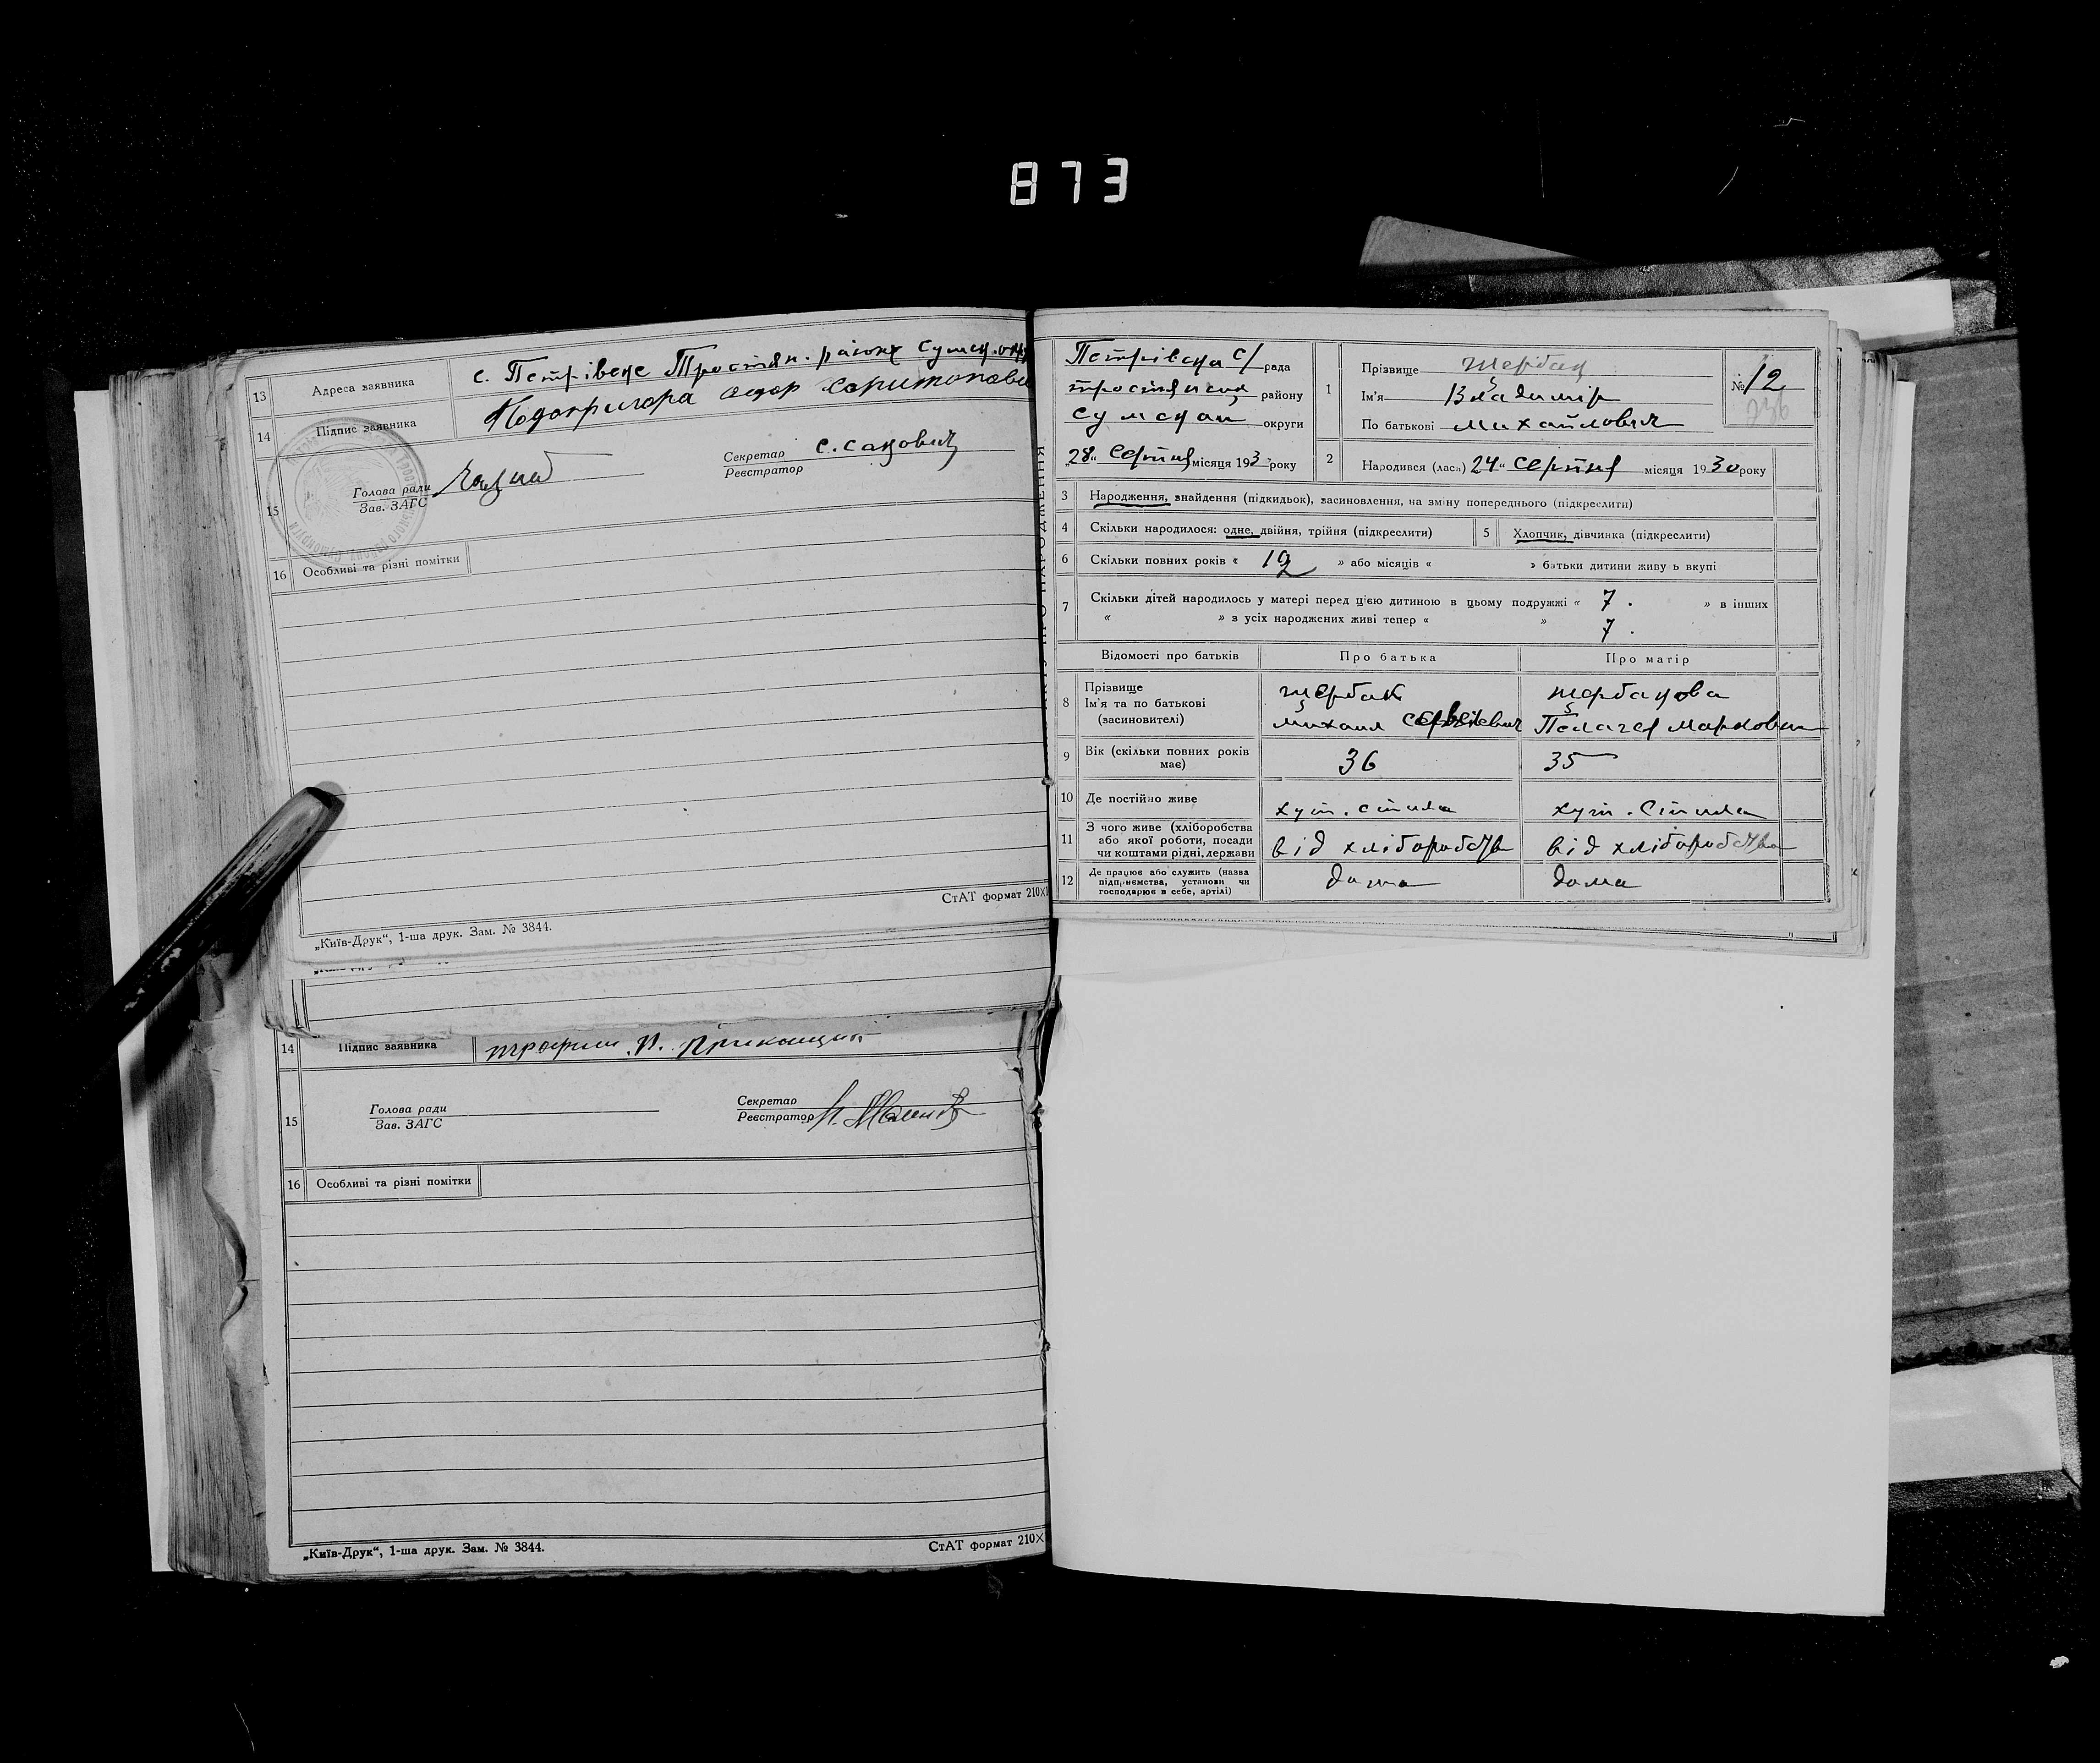 873
13 Адреса заявника с. Петрівске Тростян. району Сумск.
14 Підпис заявника Подопригора
15 Голова ради
Зав. ЗАГС
Секретар
Реєстратор
16 Особливі та різні помітки
СтАТ формат 210×
„Київ-Друк“, 1-ша друк. Зам. № 3844.
14 Підпис заявника
15 Голова ради
Зав. ЗАГС
Секретар
Реєстратор
16 Особливі та різні помітки
„Київ-Друк“, 1-ша друк. Зам. № 3844.
СтАТ формат 210×
Петрівска с/ рада
района
району
Сумскаи округи
„28“ Серпня місяця 193 року
1 Прізвище Щербак
Ім'я Владимір
По батькові Михайлович
№ 12
236
2 Народився (лась) 24“ Серпня місяця 1930 року
3 Народження, знайдення (підкидьок), засиновлення, на зміну попереднього (підкреслити)
4 Скільки народилося: одне, двійня, трійня (підкреслити)
5 Хлопчик, дівчинка (підкреслити)
6 Скільки повних років « 12 » або місяців « » батьки дитини живуть вкупі
7 Скільки дітей народилось у матері перед цією дитиною в цьому подружжі « 7 . » в інших
« » з усіх народжених живі тепер « » 7 .
Відомості про батьків Про батька Про матір
8 Прізвище
Ім'я та по батькові
(засиновителі)
Щербак
Михаил
Щербакова
Пелагея Марковна
9 Вік (скільки повних років має) 36 35
10 Де постійно живе хут.  хут.
11 З чого живе (хліборобства
або якої роботи, посади
чи коштами рідні, держави
від хліборобства від хліборобства
12 Де працює або служить (назва
підприємства, установи чи
господарює в себе, артілі)
дома дома